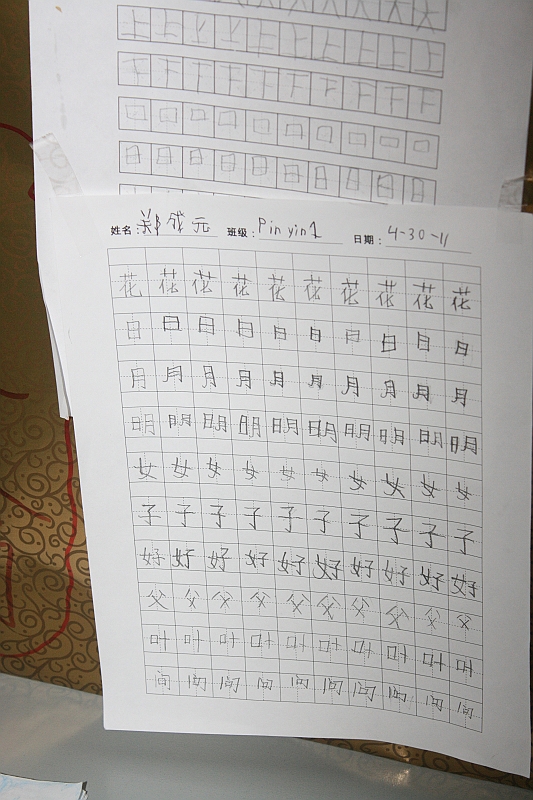 上上上上上上上上上上
下下下下下下下下下下
口口口口口口口口口口
日日日日日日日日日日
姓名：郑成元 班级：Pinyin1 日期：4-30-11
花花花花花花花花花花
日日日日日日日日日日
月月月月月月月月月月
明明明明明明明明明明
女女女女女女女女女女
子子子子子子子子子子
好好好好好好好好好好
父父父父父父父父父父
叶叶叶叶叶叶叶叶叶叶
问问问问问问问问问问